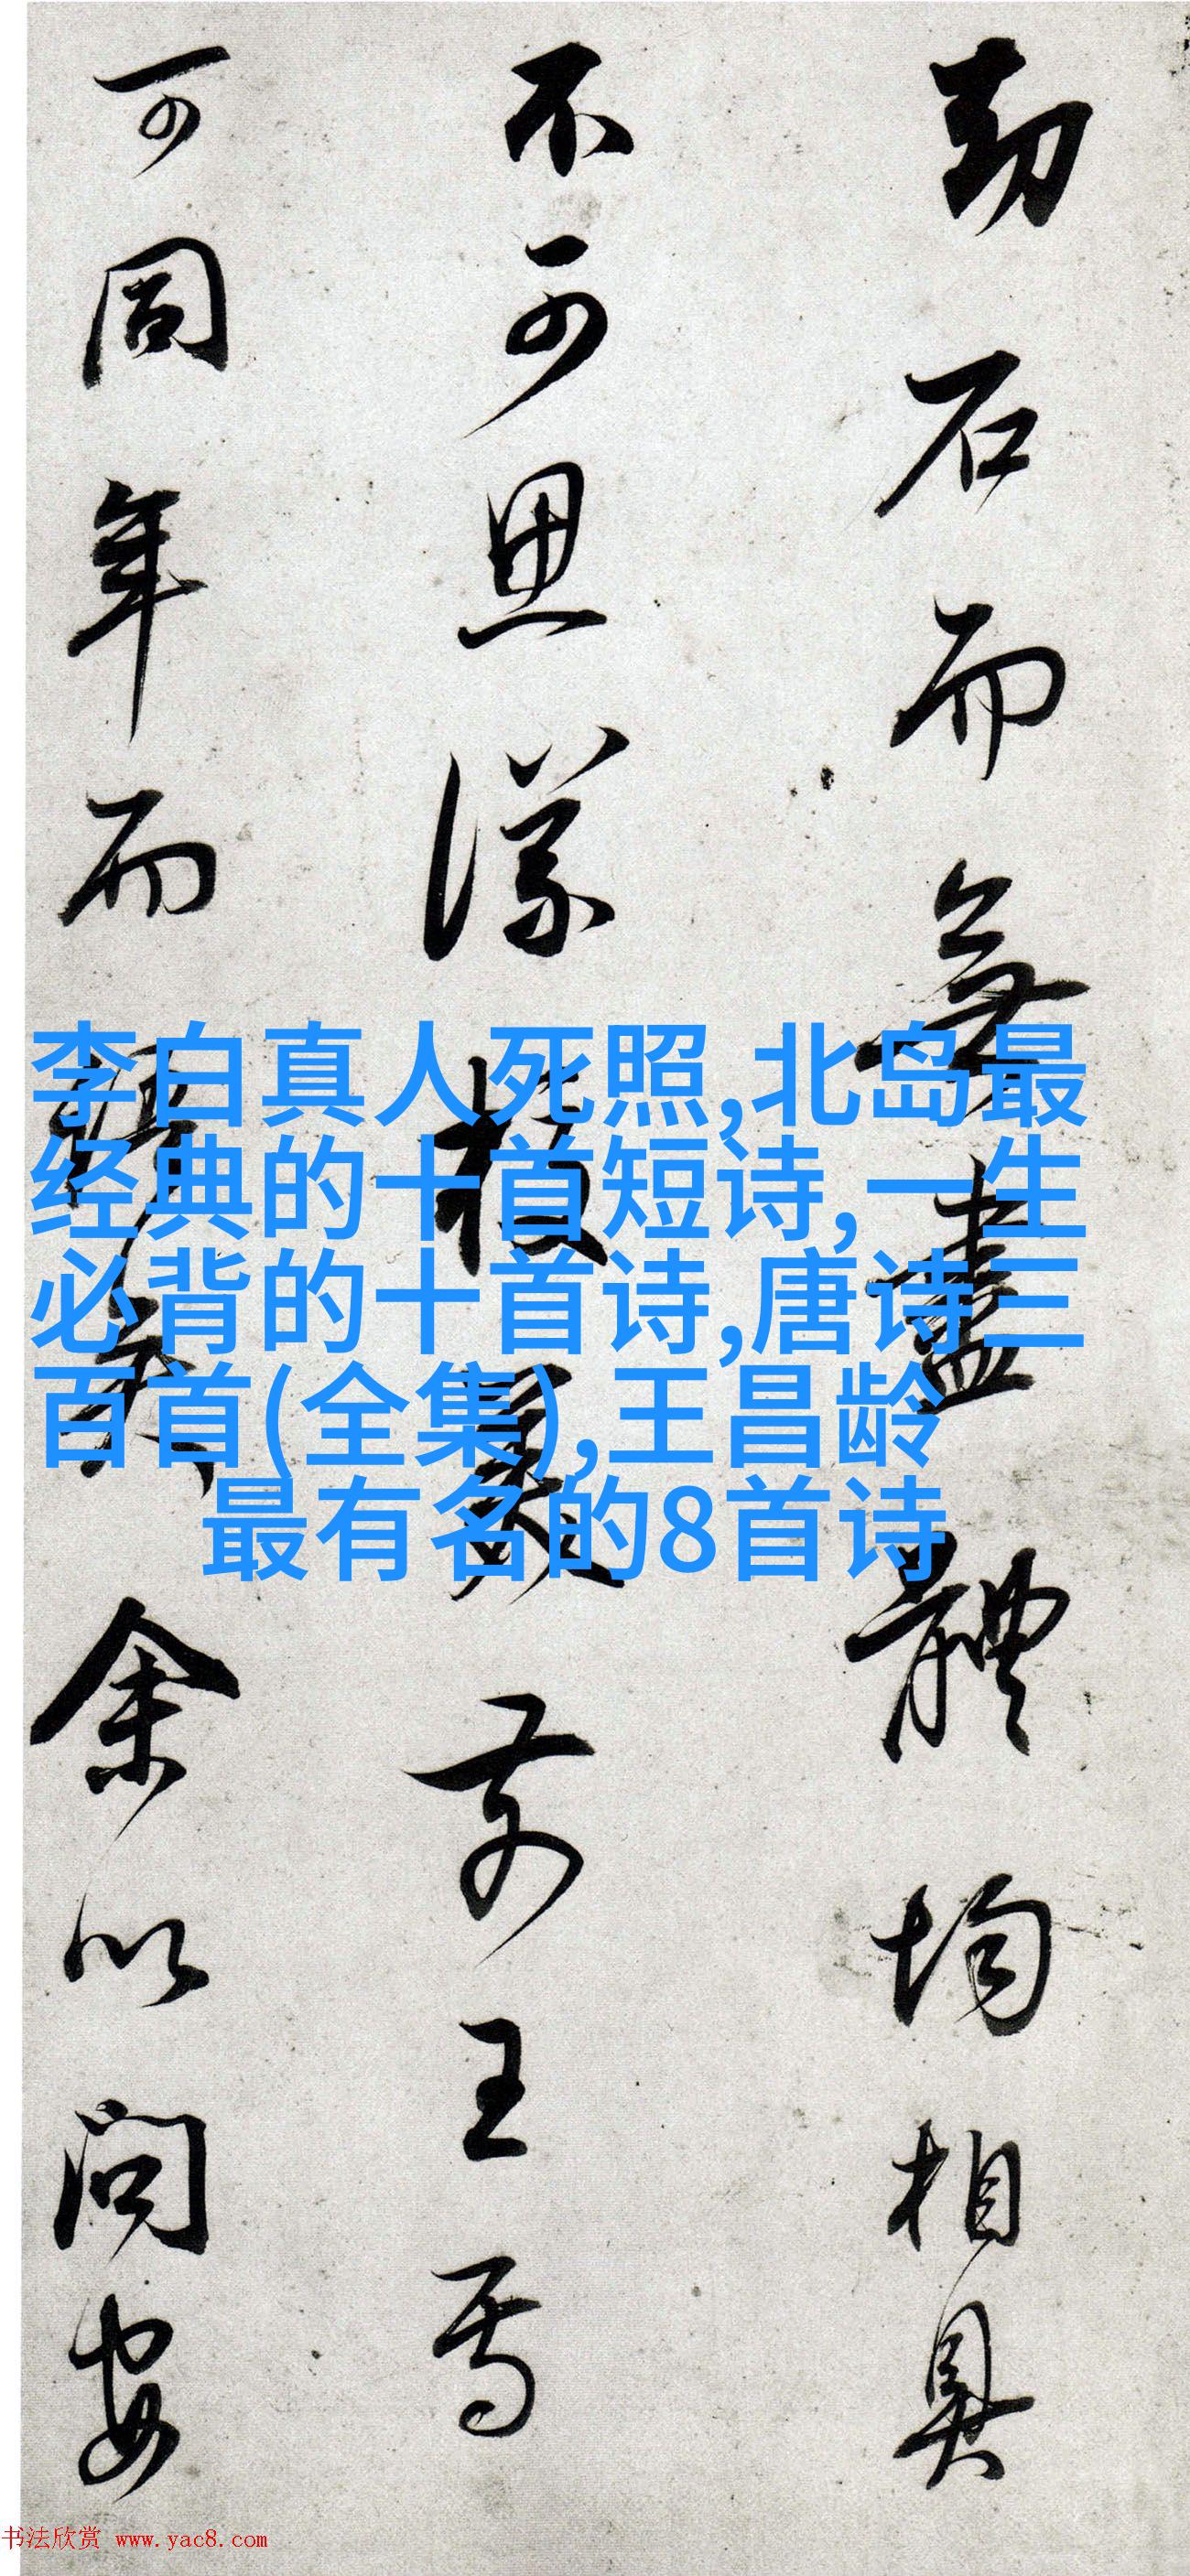 劫石而無盡體均相具
不可思議校美前王焉
可同年而語矣余以問安
李白真人死照,北岛最
经典的十首短诗,一生
必背的十首诗,唐诗三
百首(全集),王昌龄
最有名的8首诗
书法欣赏 www.yac8.com